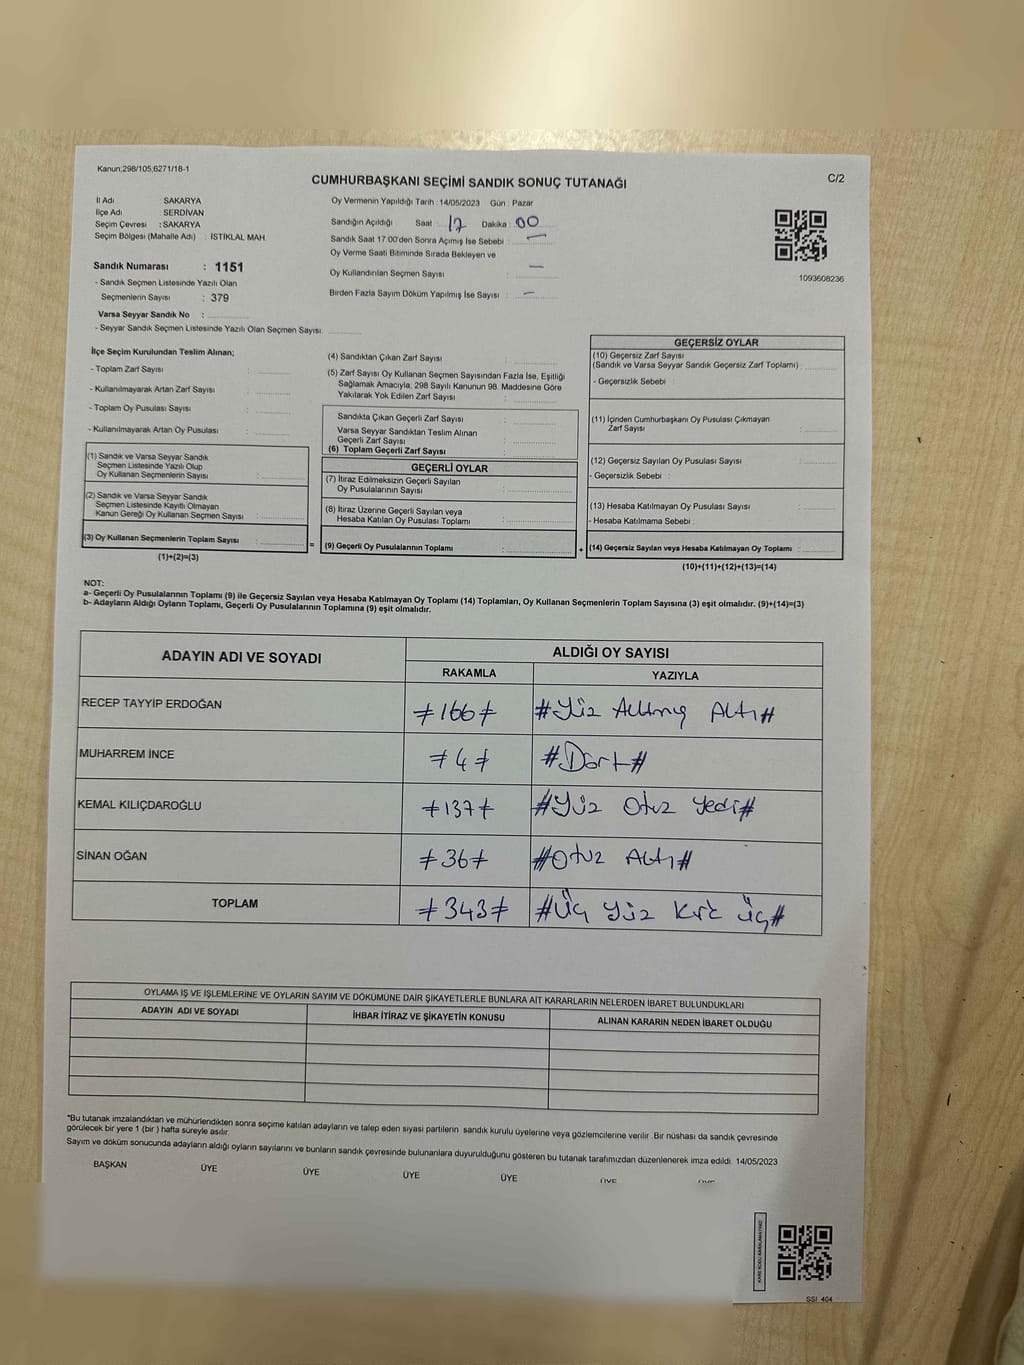 Kanun;298/105,6271/18-1
C/2
CUMHURBAŞKANI SEÇİMİ SANDIK SONUÇ TUTANAĞI
İl Adı : SAKARYA
İlçe Adı : SERDİVAN
Seçim Çevresi : SAKARYA
Seçim Bölgesi (Mahalle Adı) : İSTİKLAL MAH.
Sandık Numarası : 1151
- Sandık Seçmen Listesinde Yazılı Olan
Seçmenlerin Sayısı : 379
Varsa Seyyar Sandık No :
- Seyyar Sandık Seçmen Listesinde Yazılı Olan Seçmen Sayısı:
Oy Vermenin Yapıldığı Tarih : 14/05/2023 Gün : Pazar
Sandığın Açıldığı Saat : 17 Dakika : 00
Sandık Saat 17:00'den Sonra Açımış İse Sebebi : —
Oy Verme Saati Bitiminde Sırada Bekleyen ve
Oy Kullandırılan Seçmen Sayısı : —
Birden Fazla Sayım Döküm Yapılmış İse Sayısı : —
1093608236
İlçe Seçim Kurulundan Teslim Alınan;
- Toplam Zarf Sayısı :
- Kullanılmayarak Artan Zarf Sayısı :
- Toplam Oy Pusulası Sayısı :
- Kullanılmayarak Artan Oy Pusulası :
(1) Sandık ve Varsa Seyyar Sandık
Seçmen Listesinde Yazılı Olup
Oy Kullanan Seçmenlerin Sayısı :
(2) Sandık ve Varsa Seyyar Sandık
Seçmen Listesinde Kayıtlı Olmayan
Kanun Gereği Oy Kullanan Seçmen Sayısı :
(3) Oy Kullanan Seçmenlerin Toplam Sayısı :
(1)+(2)=(3)
=
(4) Sandıktan Çıkan Zarf Sayısı :
(5) Zarf Sayısı Oy Kullanan Seçmen Sayısından Fazla İse, Eşitliği
Sağlamak Amacıyla, 298 Sayılı Kanunun 98. Maddesine Göre
Yakılarak Yok Edilen Zarf Sayısı :
Sandıkta Çıkan Geçerli Zarf Sayısı :
Varsa Seyyar Sandıktan Teslim Alınan
Geçerli Zarf Sayısı :
(6) Toplam Geçerli Zarf Sayısı :
GEÇERLİ OYLAR
(7) İtiraz Edilmeksizin Geçerli Sayılan
Oy Pusulalarının Sayısı :
(8) İtiraz Üzerine Geçerli Sayılan veya
Hesaba Katılan Oy Pusulası Toplamı :
(9) Geçerli Oy Pusulalarının Toplamı :
+
GEÇERSİZ OYLAR
(10) Geçersiz Zarf Sayısı
(Sandık ve Varsa Seyyar Sandık Geçersiz Zarf Toplamı) :
- Geçersizlik Sebebi :
(11) İçinden Cumhurbaşkanı Oy Pusulası Çıkmayan
Zarf Sayısı :
(12) Geçersiz Sayılan Oy Pusulası Sayısı :
- Geçersizlik Sebebi :
(13) Hesaba Katılmayan Oy Pusulası Sayısı :
- Hesaba Katılmama Sebebi :
(14) Geçersiz Sayılan veya Hesaba Katılmayan Oy Toplamı :
(10)+(11)+(12)+(13)=(14)
NOT:
a- Geçerli Oy Pusulalarının Toplamı (9) ile Geçersiz Sayılan veya Hesaba Katılmayan Oy Toplamı (14) Toplamları, Oy Kullanan Seçmenlerin Toplam Sayısına (3) eşit olmalıdır. (9)+(14)=(3)
b- Adayların Aldığı Oyların Toplamı, Geçerli Oy Pusulalarının Toplamına (9) eşit olmalıdır.
ADAYIN ADI VE SOYADI ALDIĞI OY SAYISI
RAKAMLA YAZIYLA
RECEP TAYYİP ERDOĞAN ≠166≠ #Yüz Altmış Altı#
MUHARREM İNCE ≠4≠ #Dört#
KEMAL KILIÇDAROĞLU ≠137≠ #Yüz Otuz Yedi#
SİNAN OĞAN ≠36≠ #Otuz Altı#
TOPLAM ≠343≠ #Üç Yüz Kırk üç#
OYLAMA İŞ VE İŞLEMLERİNE VE OYLARIN SAYIM VE DÖKÜMÜNE DAİR ŞİKAYETLERLE BUNLARA AİT KARARLARIN NELERDEN İBARET BULUNDUKLARI
ADAYIN ADI VE SOYADI İHBAR İTİRAZ VE ŞİKAYETİN KONUSU ALINAN KARARIN NEDEN İBARET OLDUĞU
*Bu tutanak imzalandıktan ve mühürlendikten sonra seçime katılan adayların ve talep eden siyasi partilerin sandık kurulu üyelerine veya gözlemcilerine verilir. Bir nüshası da sandık çevresinde
görülecek bir yere 1 (bir ) hafta süreyle asılır.
Sayım ve döküm sonucunda adayların aldığı oyların sayılarını ve bunların sandık çevresinde bulunanlara duyurulduğunu gösteren bu tutanak tarafımızdan düzenlenerek imza edildi. 14/05/2023
BAŞKAN ÜYE ÜYE ÜYE ÜYE ÜYE
SSI 404